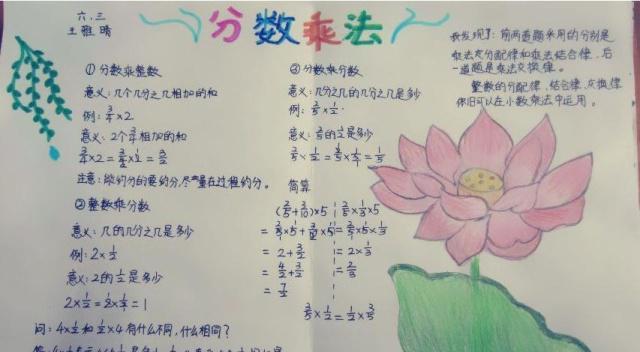 六.三
王雅晴
分数乘法
① 分数乘整数
意义:几个几分之几相加的和
例: 3/4×2
意义:2个3/4相加的和
注意:能约分的要约分,尽量在过程约分。
② 整数乘分数
意义:几的几分之几是多少
例: 2×1/2
意义:2的1/2是多少
2×1/2=2×1/2=1
问: 4×1/2和1/2×4有什么不同,什么相同?
③ 分数乘分数
意义:几分之几的几分之几是多少
例: 2/5×1/2
意义: 2/5的1/2是多少
2/5×1/2=2/5×1/2=1/5
简算
(2/5+3/10)×5
=2/5×5+3/10×5
=2+3/2
=4/2+3/2
=7/2
2/5×1/3×5
=2/5×5×1/3
=2×1/3
=2/3
3/5×1/2=1/2×3/5
我发现了:前两道题采用的分别是
乘法交分配律和乘法结合律,后
一道题是乘法交换律。
整数的分配律,结合律,交换律
依旧可以在小数乘法中运用。